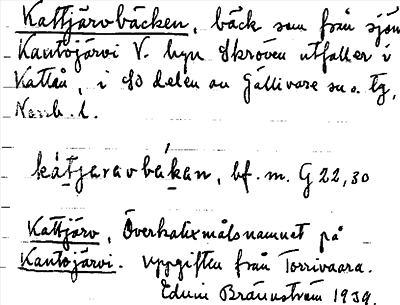 Kattjärvbäcken, bäck som från sjön
Kantojärvi V. byn Skröven utfaller i
Kattån, i SO delen av Gällivare sn o. tg,
Norrb. l.
kátjaravbäkan, bf. m. G 22,30
Kattjärv, Överkalixmålsnamnet på
Kantojärvi. Uppgiften från Torrivaara.
Edvin Brännström 1939.